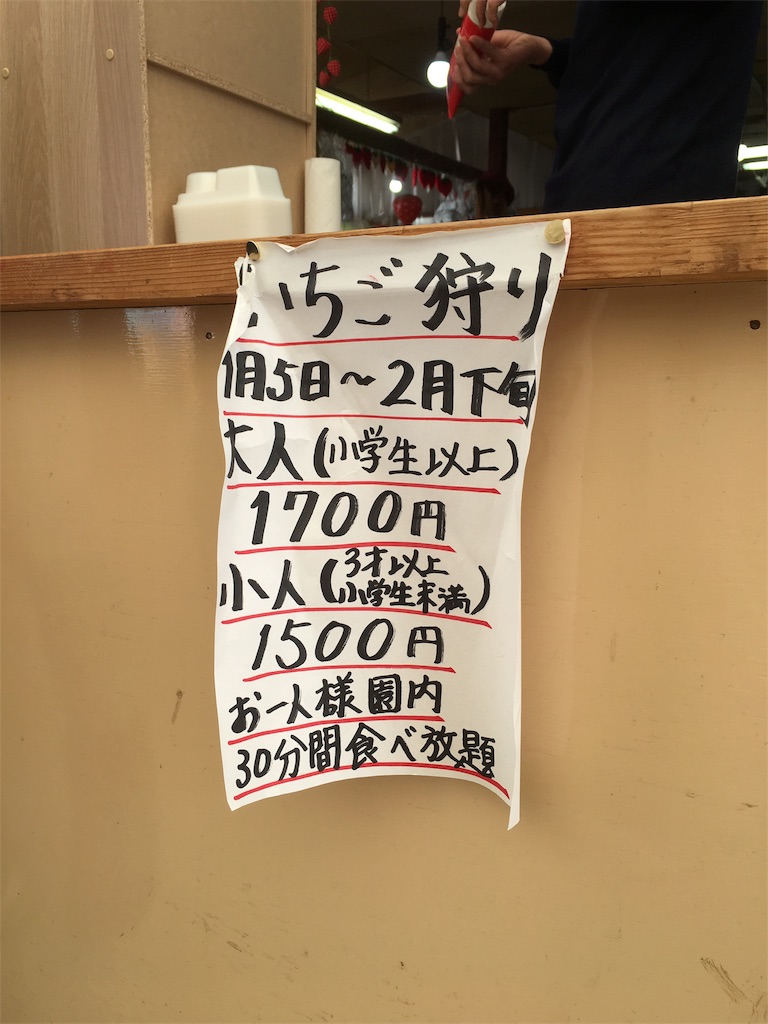 いちご狩り
1月5日〜2月下旬
大人(小学生以上)
1700円
小人(3才以上
小学生未満)
1500円
お一人様園内
30分間食べ放題